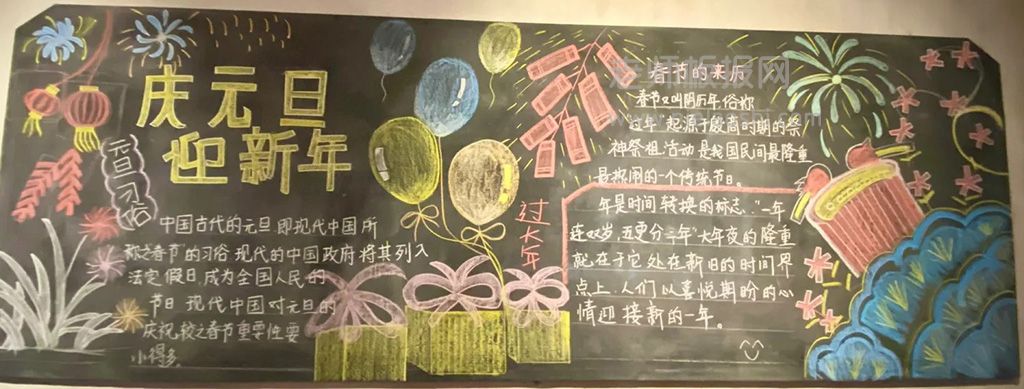 庆元旦
迎新年
元旦习俗
中国古代的元旦即现代中国所
称之春节的习俗现代的中国政府将其列入
法定假日,成为全国人民的
节日.现代中国对元旦的
庆祝较之春节重要性要
小得多
过大年
春节的来历
春节又叫阴历年俗称
"过年"起源于殷商时期的祭
神祭祖活动是我国民间最隆重
最热闹的一个传统节日。
年是时间转换的标志."一年
连双岁,五更分二年"大年夜的隆重
就在于它处在新旧的时间界
点上.人们以喜悦期盼的心
情迎接新的一年。